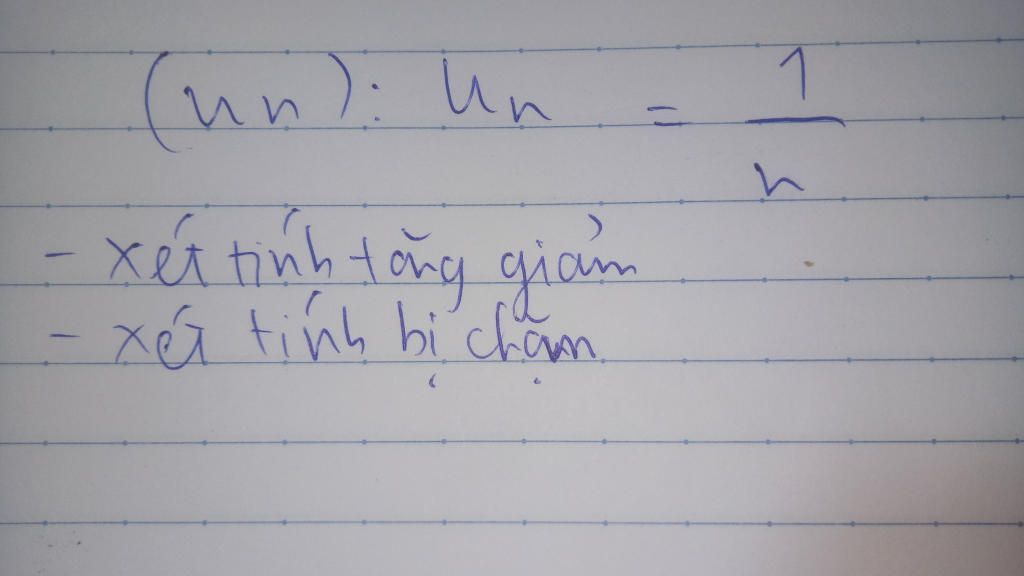 (un): Un = 1/n
- xét tính tăng giảm
- xét tính bị chặn